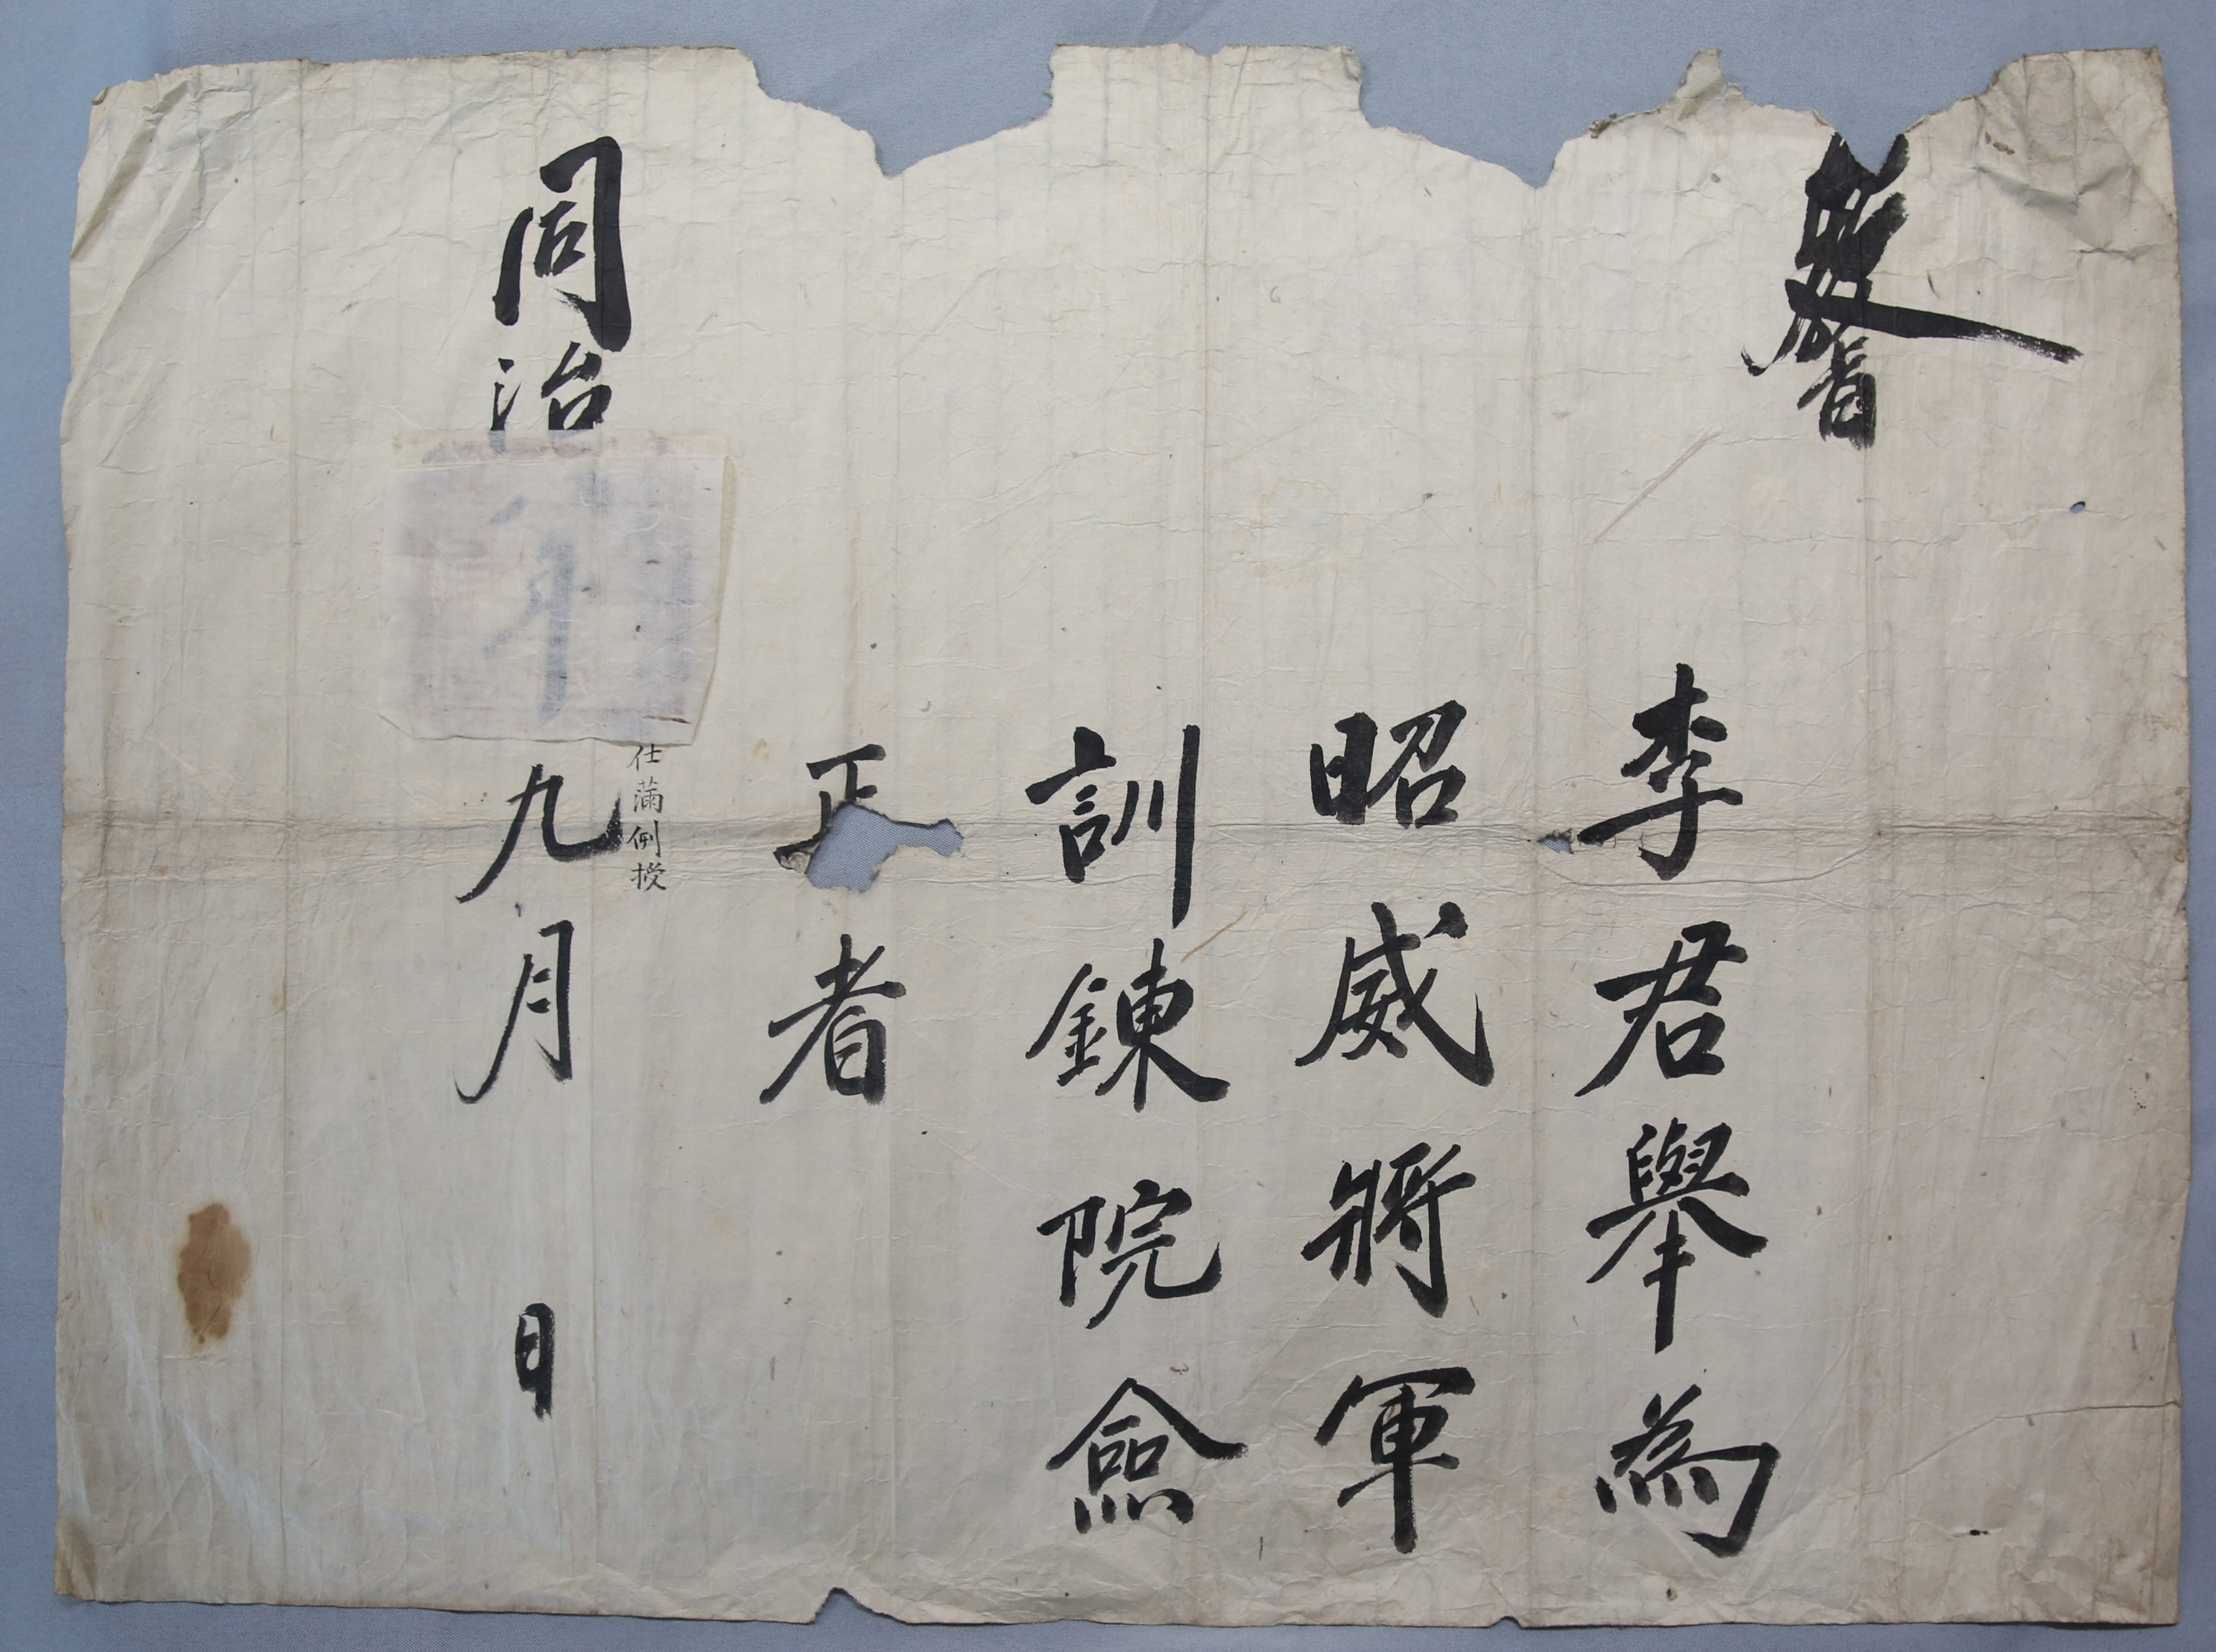 敎旨
李君舉為
昭威將軍
訓鍊院僉
正者
同治 年九月 日
仕滿例授